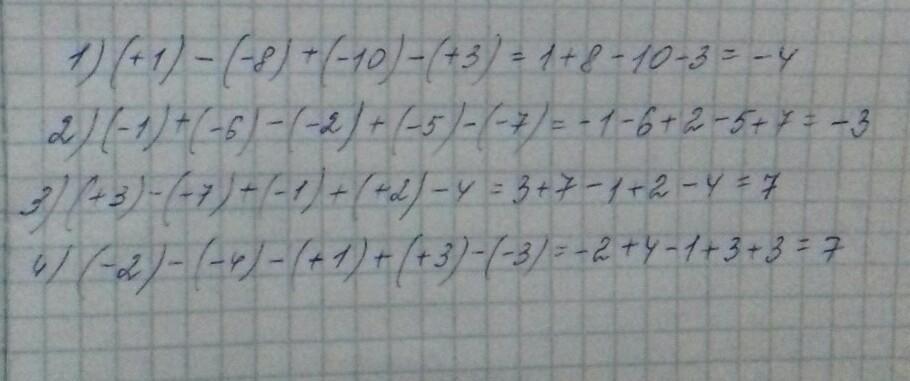 1) (+1) - (-8) + (-10) - (+3) = 1+8-10-3 = -4
2) (-1) + (-6) - (-2) + (-5) - (-7) = -1-6+2-5+7 = -3
3) (+3) - (-7) + (-1) + (+2) - 4 = 3+7-1+2-4 = 7
4) (-2) - (-4) - (+1) + (+3) - (-3) = -2+4-1+3+3 = 7